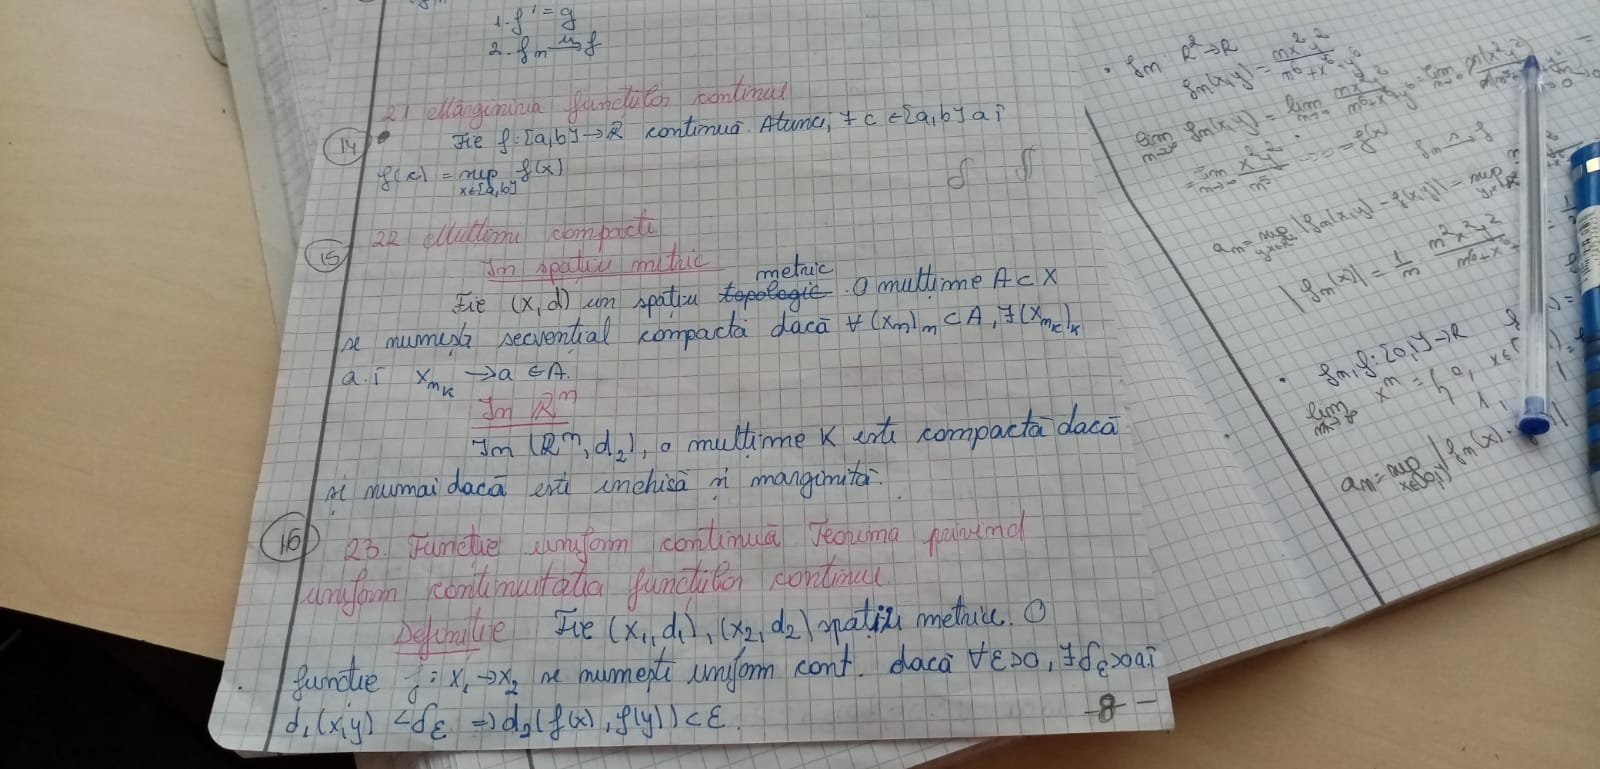 1. f' = g
2. fn u→ f
21 Mărginirea funcțiilor continue
14 Fie f: [a,b] → R continuă. Atunci, ∃ c ∈ [a,b] a î
f(c) = sup f(x)
x∈[a,b]
22 Mulțimi compacte
15 În spațiu metric
Fie (X, d) un spațiu metric. O mulțime A ⊂ X
se numește secvențial compactă dacă ∀ (xn)n ⊂ A, ∃ (xnk)k
a.î xnk → a ∈ A.
În Rⁿ
În (Rⁿ, d₂), o mulțime K este compactă dacă
și numai dacă este închisă și marginită.
16 23. Funcție uniform continuă Teorema privind
uniform continuitatea funcțiilor continue
Definiție Fie (X₁, d₁), (X₂, d₂) spații metrice. O
funcție f: X₁ → X₂ se numește uniform cont. dacă ∀ε>0, ∃δε>0 aî
d₁(x,y) < δε ⇒ d₂(f(x), f(y)) < ε.
-8-
fn: R² → R
fn(x,y) =
lim fn(x,y) = lim
fn s→ f
an = sup |fn(x,y) - f(x,y)| = sup
|fn(x)| = 1/n
fn, f: [0,1] → R
lim xⁿ = { 0, x∈[
1,
an = sup |fn(x) -
x∈[0,1]